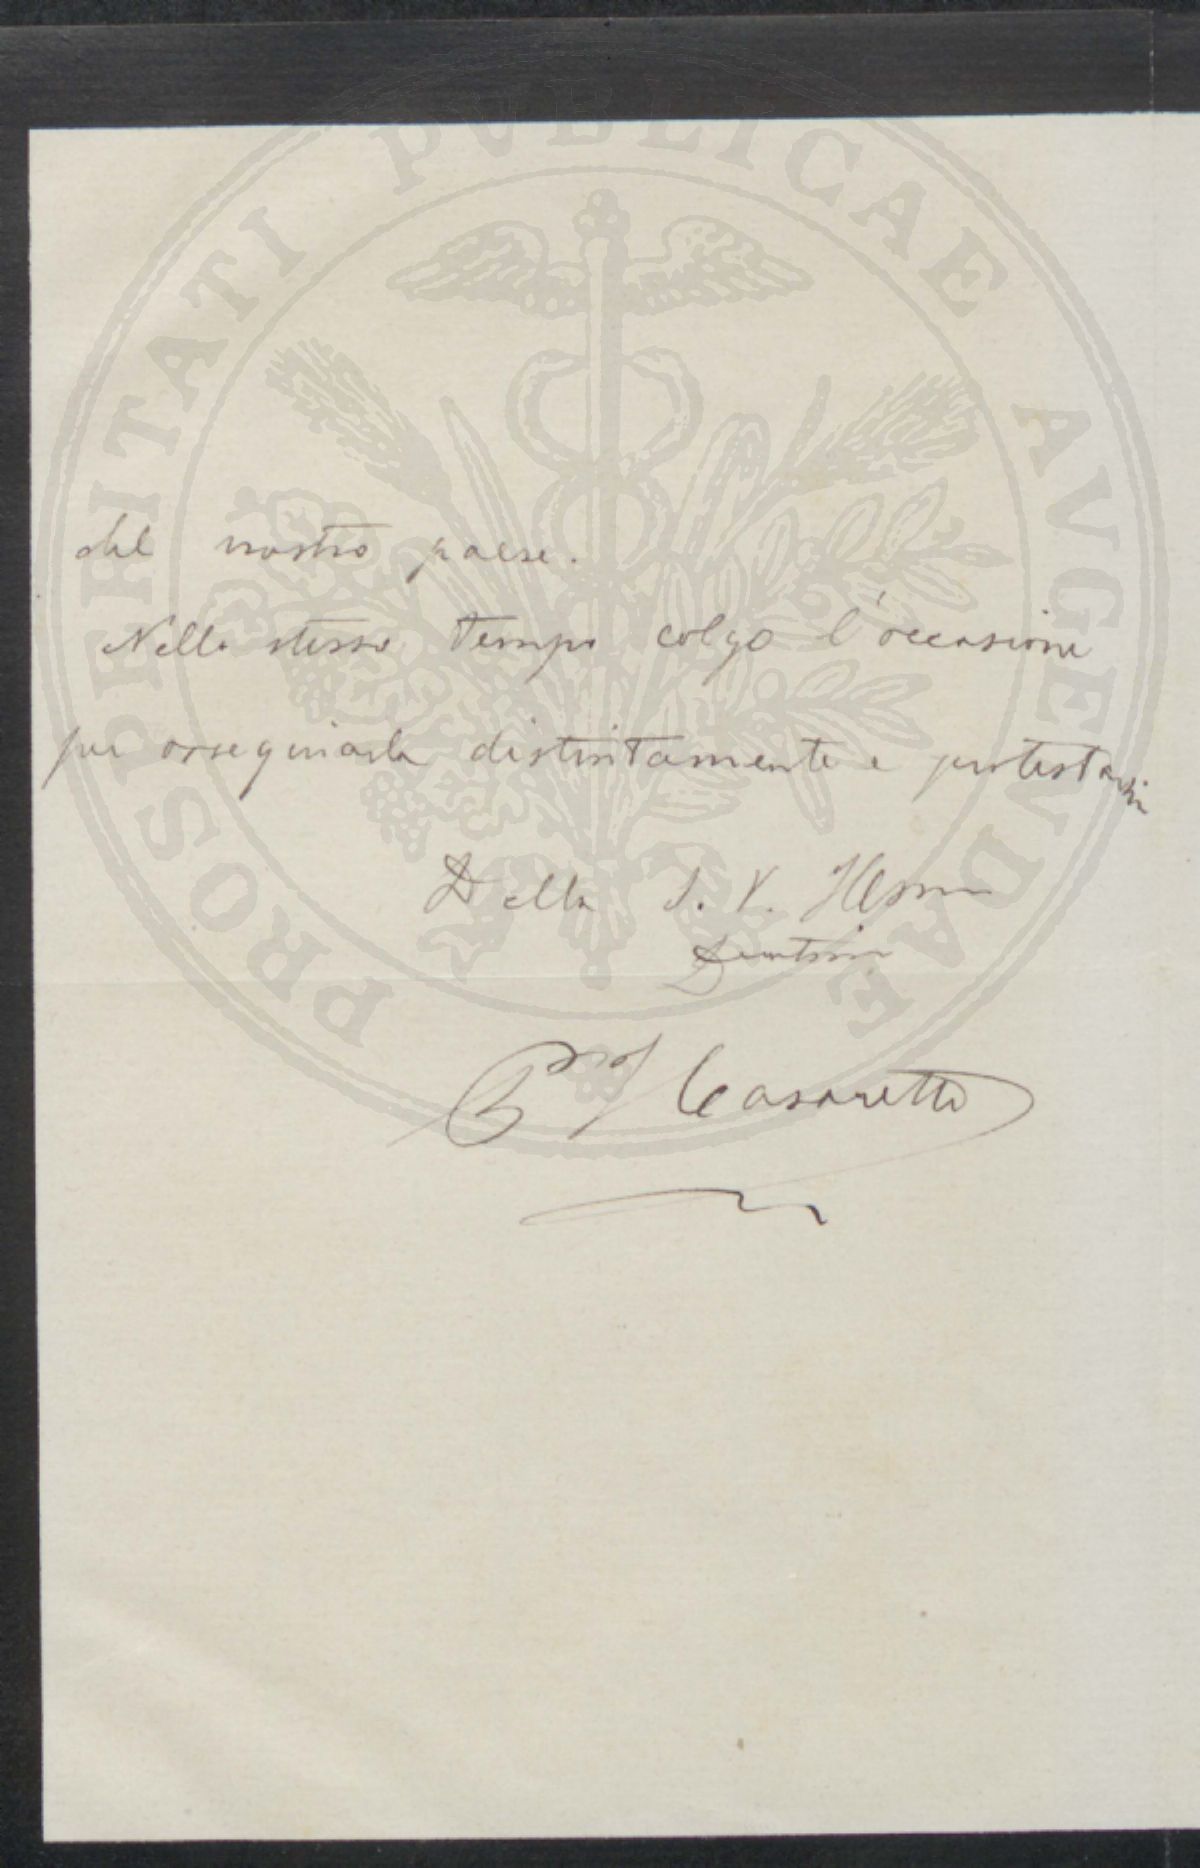 PROSPERITATI PVBLICAE AVGENDAE
del nostro paese.
Nello stesso tempo colgo l'occasione
per ossequiarla distintamente e protestarmi
Della S. V. Ill.ma
Casaretto